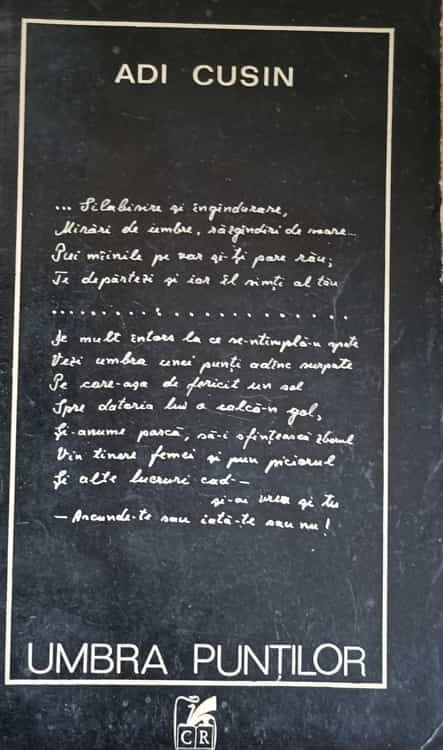 ADI CUSIN
... Silabisire și îngîndurare,
Mirări de umbre, răzgîndiri de mare...
Pui mîinile pe var și-ți pare rău;
Te depărtezi și iar îl simți al tău
. . . . . . . . . . . . . . . . . .
De mult întors la ce se-ntîmplă-n spate
Vezi umbra unei punți adînc surpate
Pe care-așa de fericit un sol
Spre datoria lui a călcat-n gol,
Și-anume parcă, să-i sfințească zborul
Vin tinere femei și pun piciorul
Și alte lucruri cad —
și-ai vrea și tu
— Ascunde-te sau iată-te sau nu!
UMBRA PUNȚILOR
CR